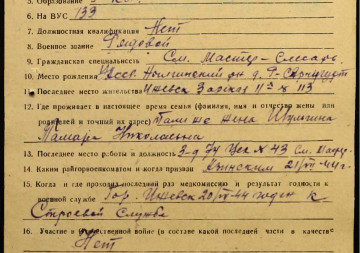 5. Образование
6. На ВУС 133
7. Должностная квалификация Нет
8. Военное звание Рядовой
9. Гражданская специальность См. Мастер-Слесарь
10. Место рождения
11. Последнее место жительства Ижевск 113
12. Где проживает в настоящее время семья (фамилия, имя и отчество жены или
родителей и точный их адрес) жена
Тамара Николаевна
13. Последнее место работы и должность 3-д 74 Цех № 43 См. Мастер
14. Каким райгорвоенкоматом и когда призван
15. Когда и где проходил последний раз медкомиссию и результат годности к
военной службе Гор. Ижевск годен к
Строевой службе
16. Участие в Отечественной войне (в составе какой последней части и качестве
Нет